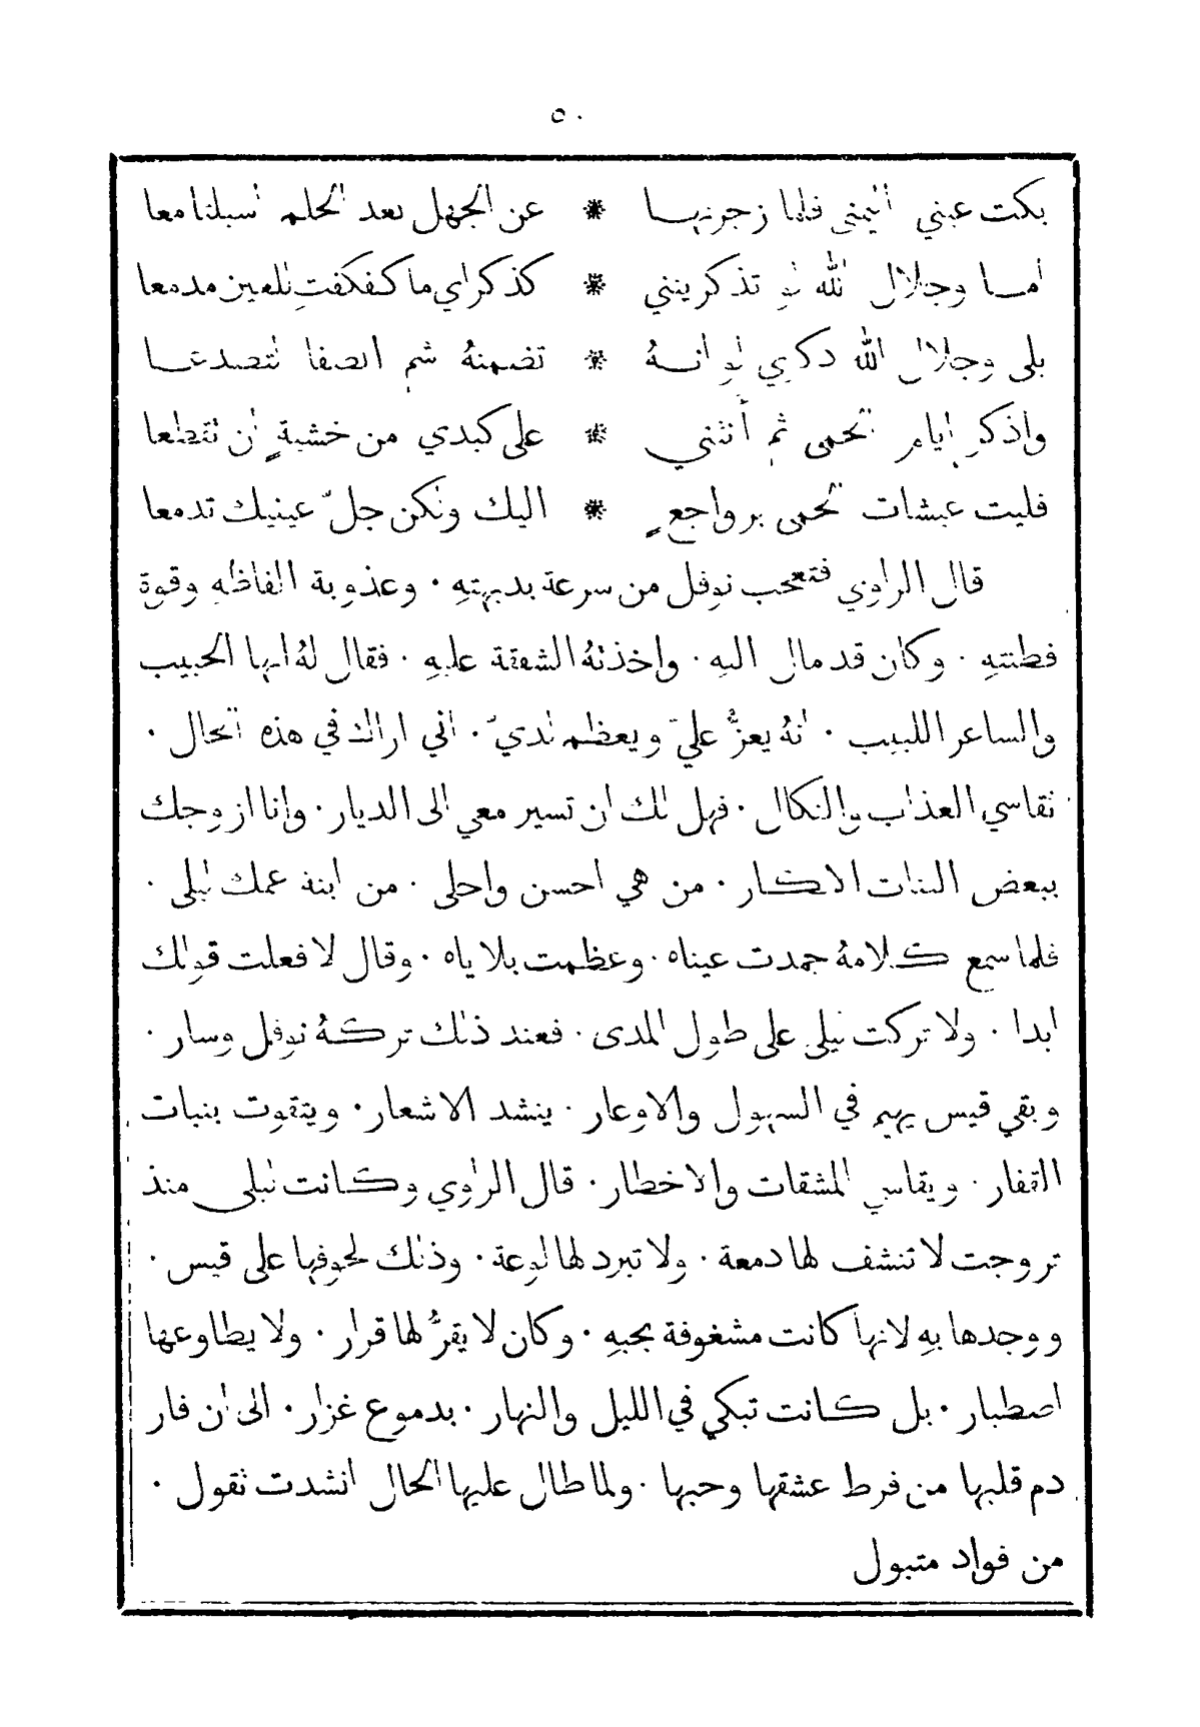 ٥٠
بكت عيني اليمنى فلما زجرتها * عن الجهل بعد الحلم اسبلتا معا
اما وجلال الله لو تذكرينني * كذكراي ما كفكفتِ للعين مدمعا
بلى وجلال الله ذكري لو انهُ * تضمنهُ شم الصفا لتصدعا
واذكر ايام الحمى ثم أنثني * على كبدي من خشيةٍ ان تقطعا
فليت عيشات الحمى برواجعٍ * اليك ولكن جلّ عينيك تدمعا
قال الراوي فتعجب نوفل من سرعة بديهتهِ . وعذوبة الفاظهِ وقوة
فطنتهِ . وكان قد مال اليهِ . واخذتهُ الشفقة عليهِ . فقال لهُ ايها الحبيب
والشاعر اللبيب . انهُ يعزُّ عليّ ويعظم لديّ . اني اراك في هذه الحال .
تقاسي العذاب والنكال . فهل لك ان تسير معي الى الديار . وانا ازوجك
ببعض البنات الابكار . من هي احسن واحلى . من ابنة عمك ليلى .
فلما سمع كلامهُ جمدت عيناه . وعظمت بلاياه . وقال لا فعلت قولك
ابدا . ولا تركت ليلى على طول المدى . فعند ذلك تركهُ نوفل وسار .
وبقي قيس يهيم في السهول والاوعار . ينشد الاشعار . ويتقوت بنبات
القفار . ويقاسي المشقات والاخطار . قال الراوي وكانت ليلى منذ
تزوجت لا تنشف لها دمعة . ولا تبرد لها لوعة . وذلك لخوفها على قيس .
ووجدها بهِ لانها كانت مشغوفة بحبهِ . وكان لا يقرُّ لها قرار . ولا يطاوعها
اصطبار . بل كانت تبكي في الليل والنهار . بدموع غزار . الى ان فار
دم قلبها من فرط عشقها وحبها . ولما طال عليها الحال انشدت تقول .
من فواد متبول